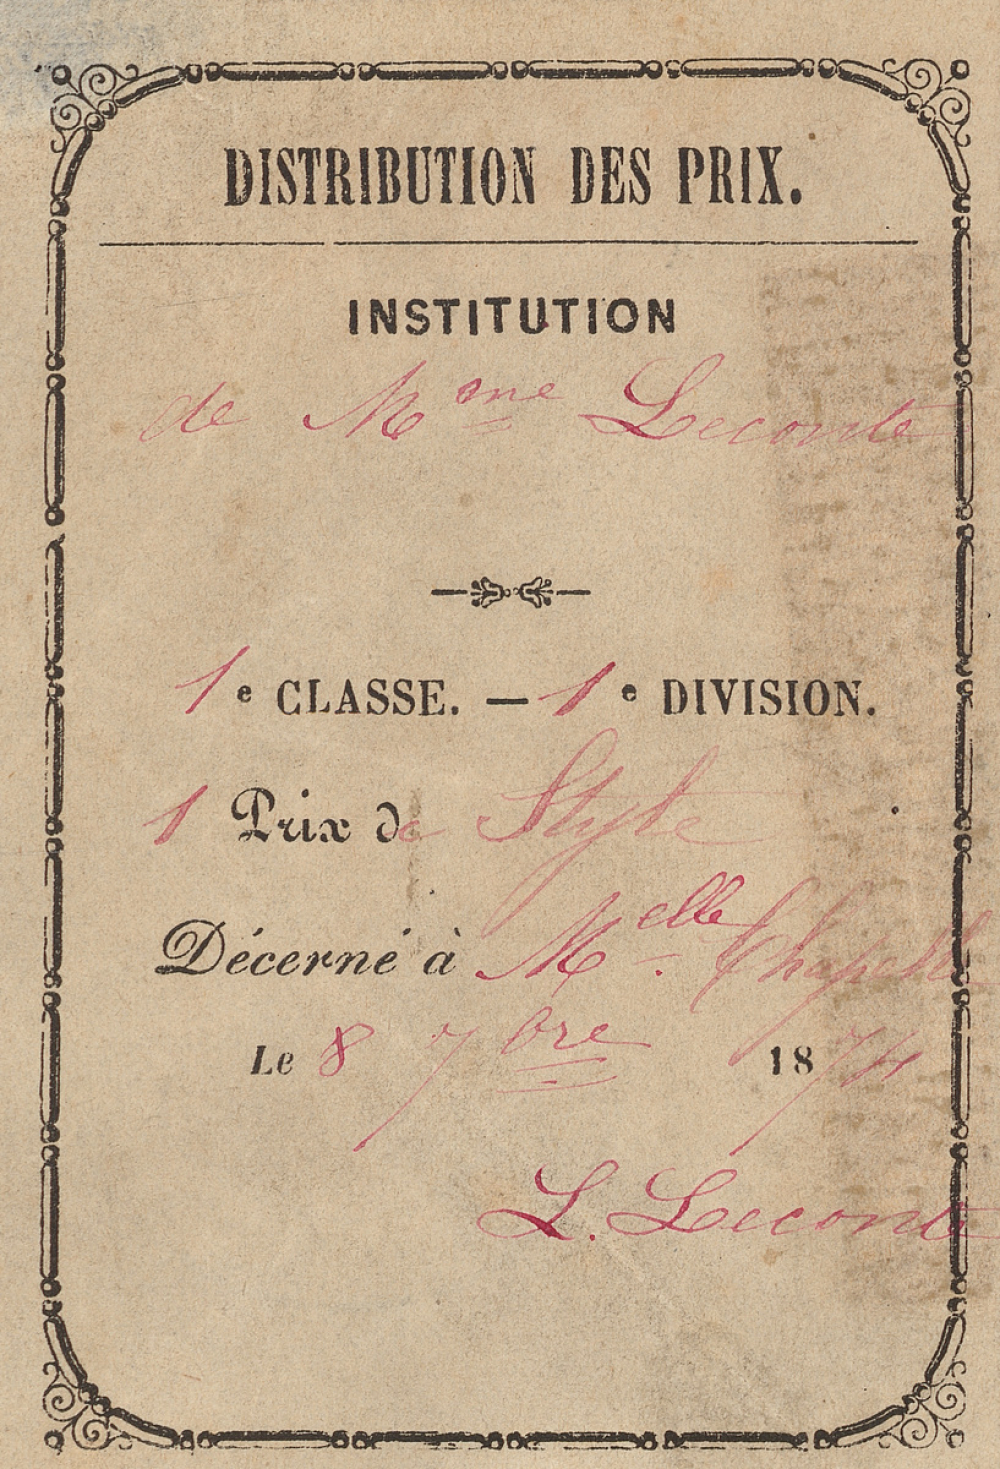 DISTRIBUTION DES PRIX.
INSTITUTION
de Mme Leconte
1e CLASSE. — 1e DIVISION.
1 Prix de Style
Décerné à Melle Chapelle
Le 8 7bre 1874
L. Leconte